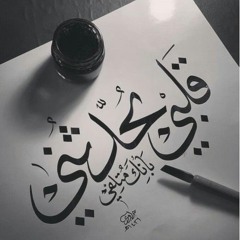 قلبي يحدثني
بأنك متلفي